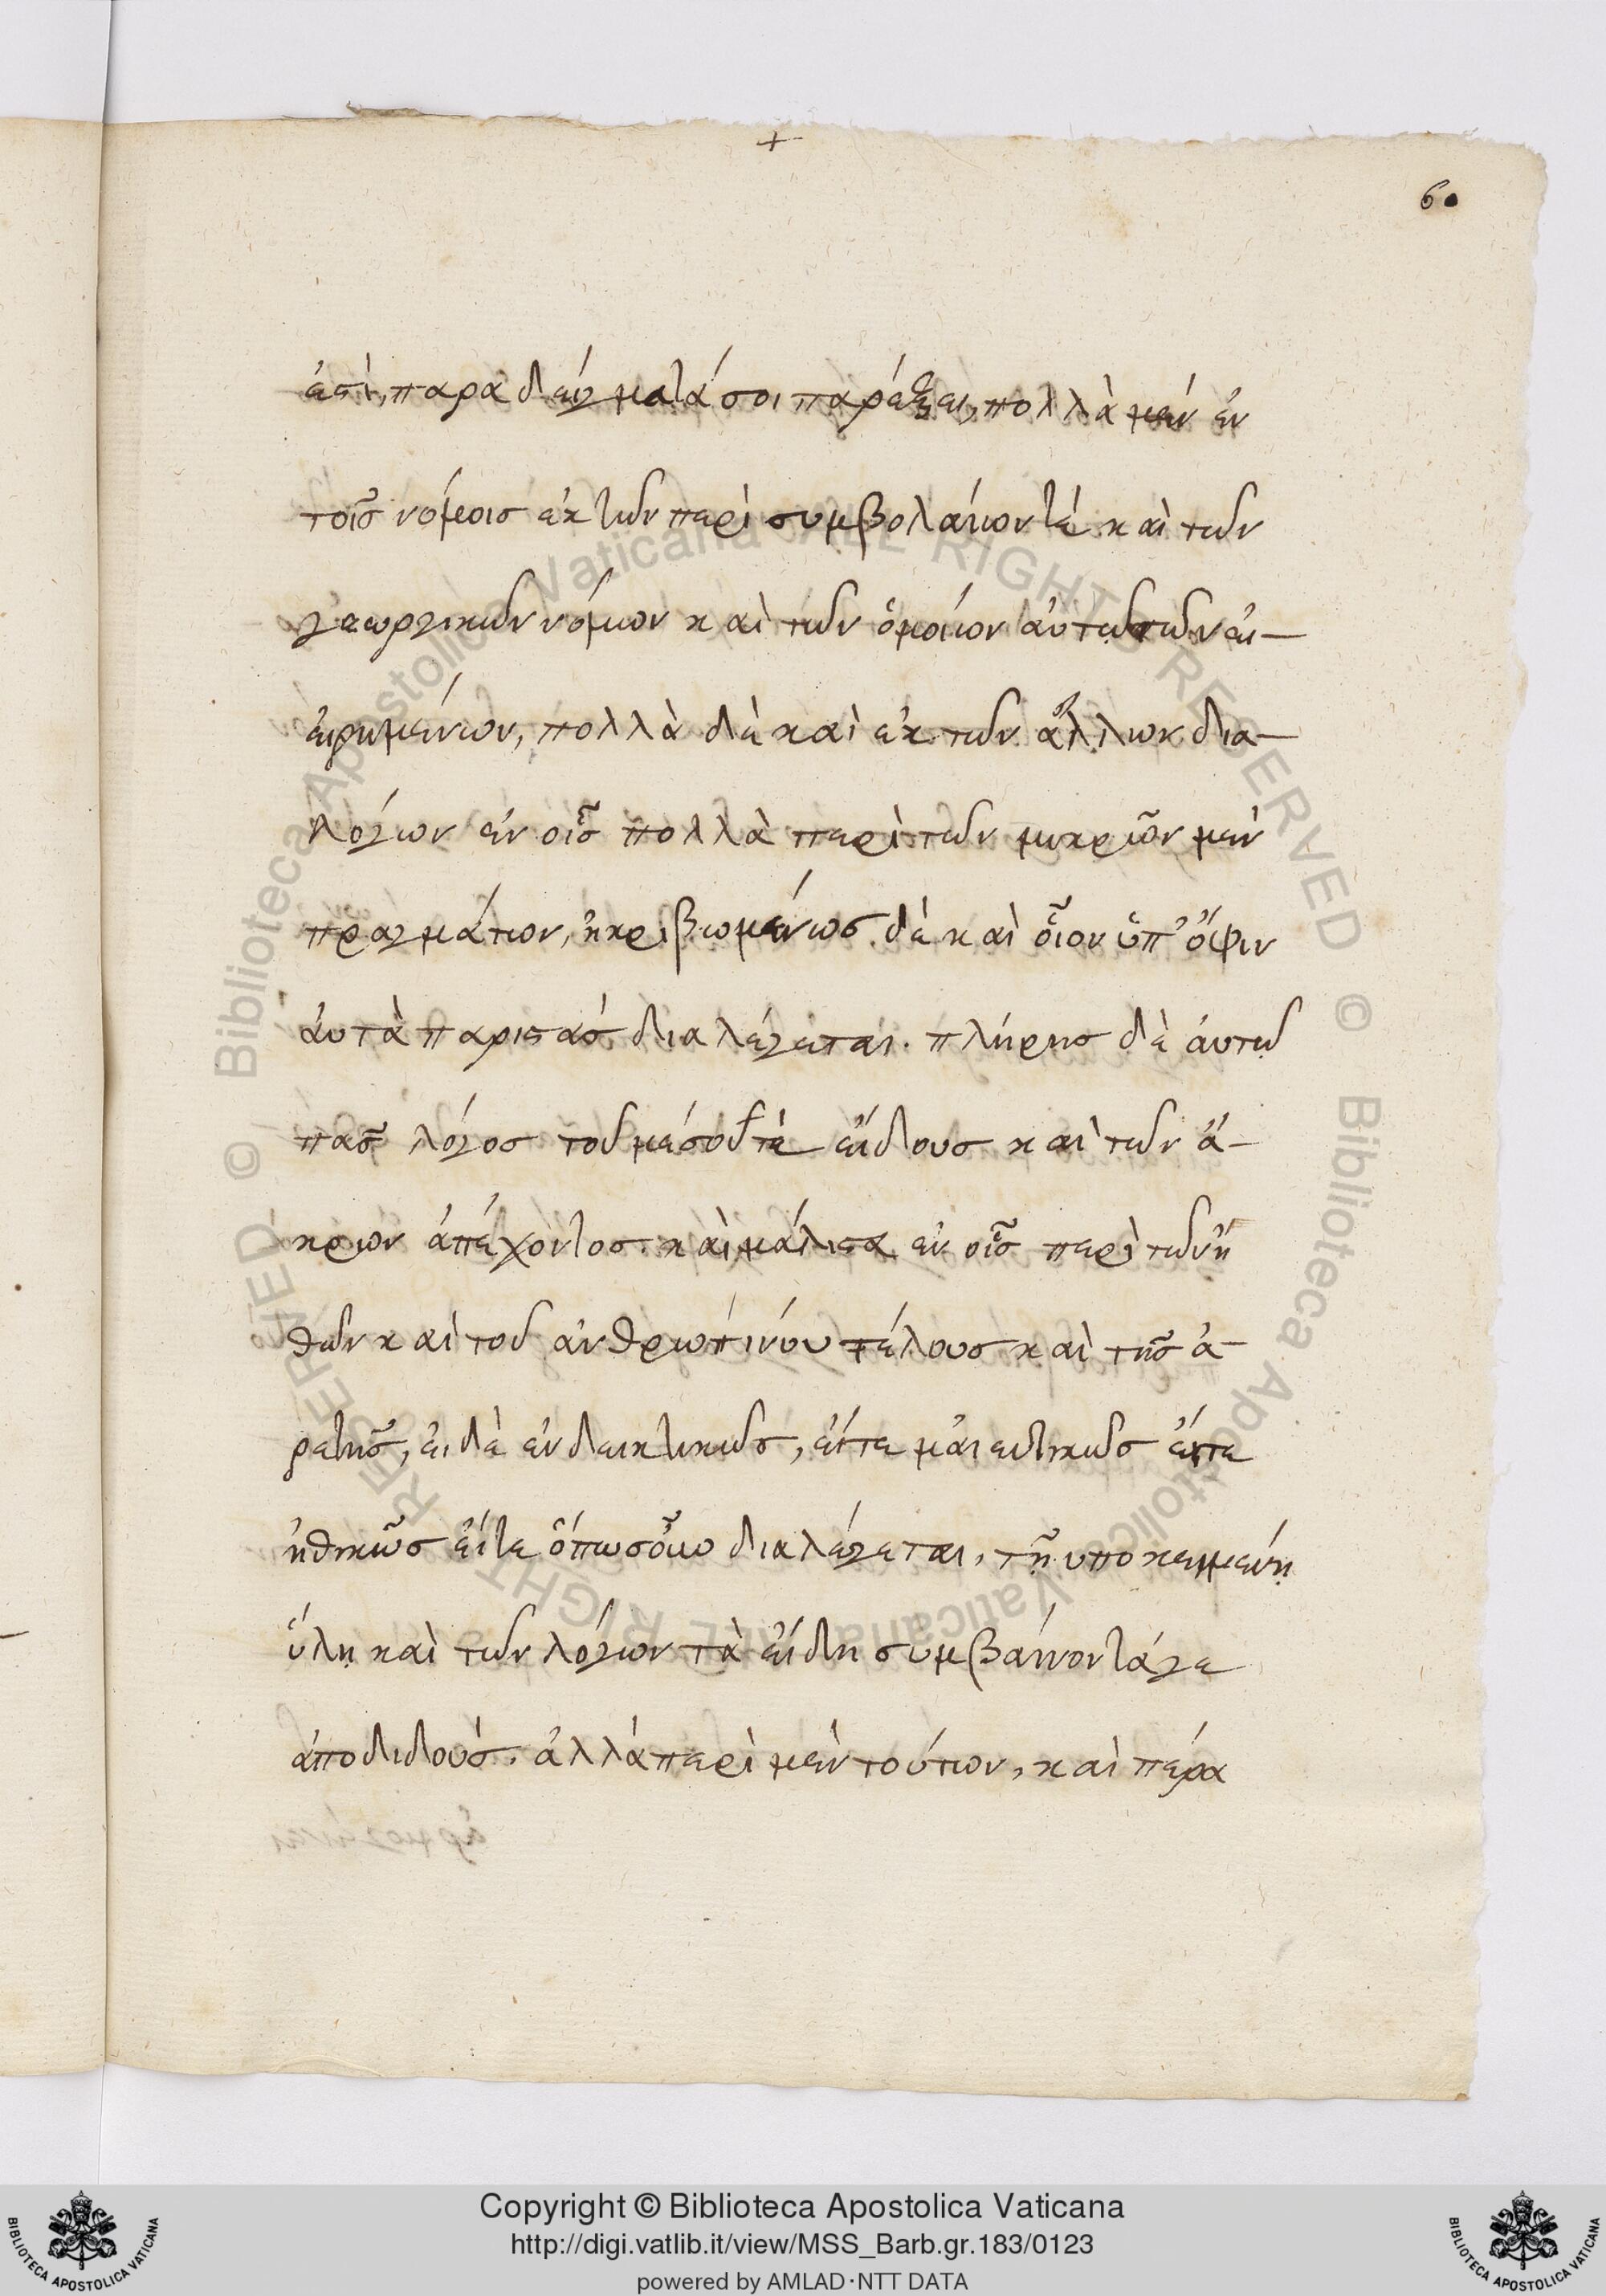 +
60
ἐστὶ, παραδείγματά σοι παρέξει, πολλὰ μὲν ἐν
τοῖς νόμοις ἐκ τῶν περὶ συμβολαίων τὲ καὶ τῶν
γεωργικῶν νόμων καὶ τῶν ὁμοίων αὐτῶ τῶν εἰ-
ειρημένων, πολλὰ δὲ καὶ ἐκ τῶν ἄλλων δια-
λόγων ἐν οἷς πολλὰ περὶ τῶν μικρῶν μὲν
πραγμάτων, ἠκριβωμένως δὲ καὶ οἷον ὑπ' ὄψιν
ἀυτὰ παριστὰς διαλέγεται. πλήρης δὲ ἀυτῶ
πᾶς λόγος τοῦ μέσου τὲ εἴδους καὶ τῶν ἄ-
κρων ἀπέχοντος. καὶ μάλιστα ἐν οἷς περὶ τῶν ἠ
θῶν καὶ τοῦ ἀνθρωπίνου τέλους καὶ τῆς ἀ-
ρετῆς, εἰ δὲ ἐνδεικτικῶς, εἴτε μαιευτικῶς εἴτε
ἠθικῶς εἴτε ὁπωσοῦν διαλέγεται, τῇ ὑποκειμένῃ
ὕλῃ καὶ τῶν λόγων τὰ εἴδη συμβαίνοντάγε
ἀποδιδοὺς. ἀλλὰ περὶ μὲν τούτων, καὶ πέρα
Copyright © Biblioteca Apostolica Vaticana
http://digi.vatlib.it/view/MSS_Barb.gr.183/0123
powered by AMLAD·NTT DATA
BIBLIOTECA APOSTOLICA VATICANA
BIBLIOTECA APOSTOLICA VATICANA
© Biblioteca Apostolica Vaticana ALL RIGHTS RESERVED
© Biblioteca Apostolica Vaticana ALL RIGHTS RESERVED